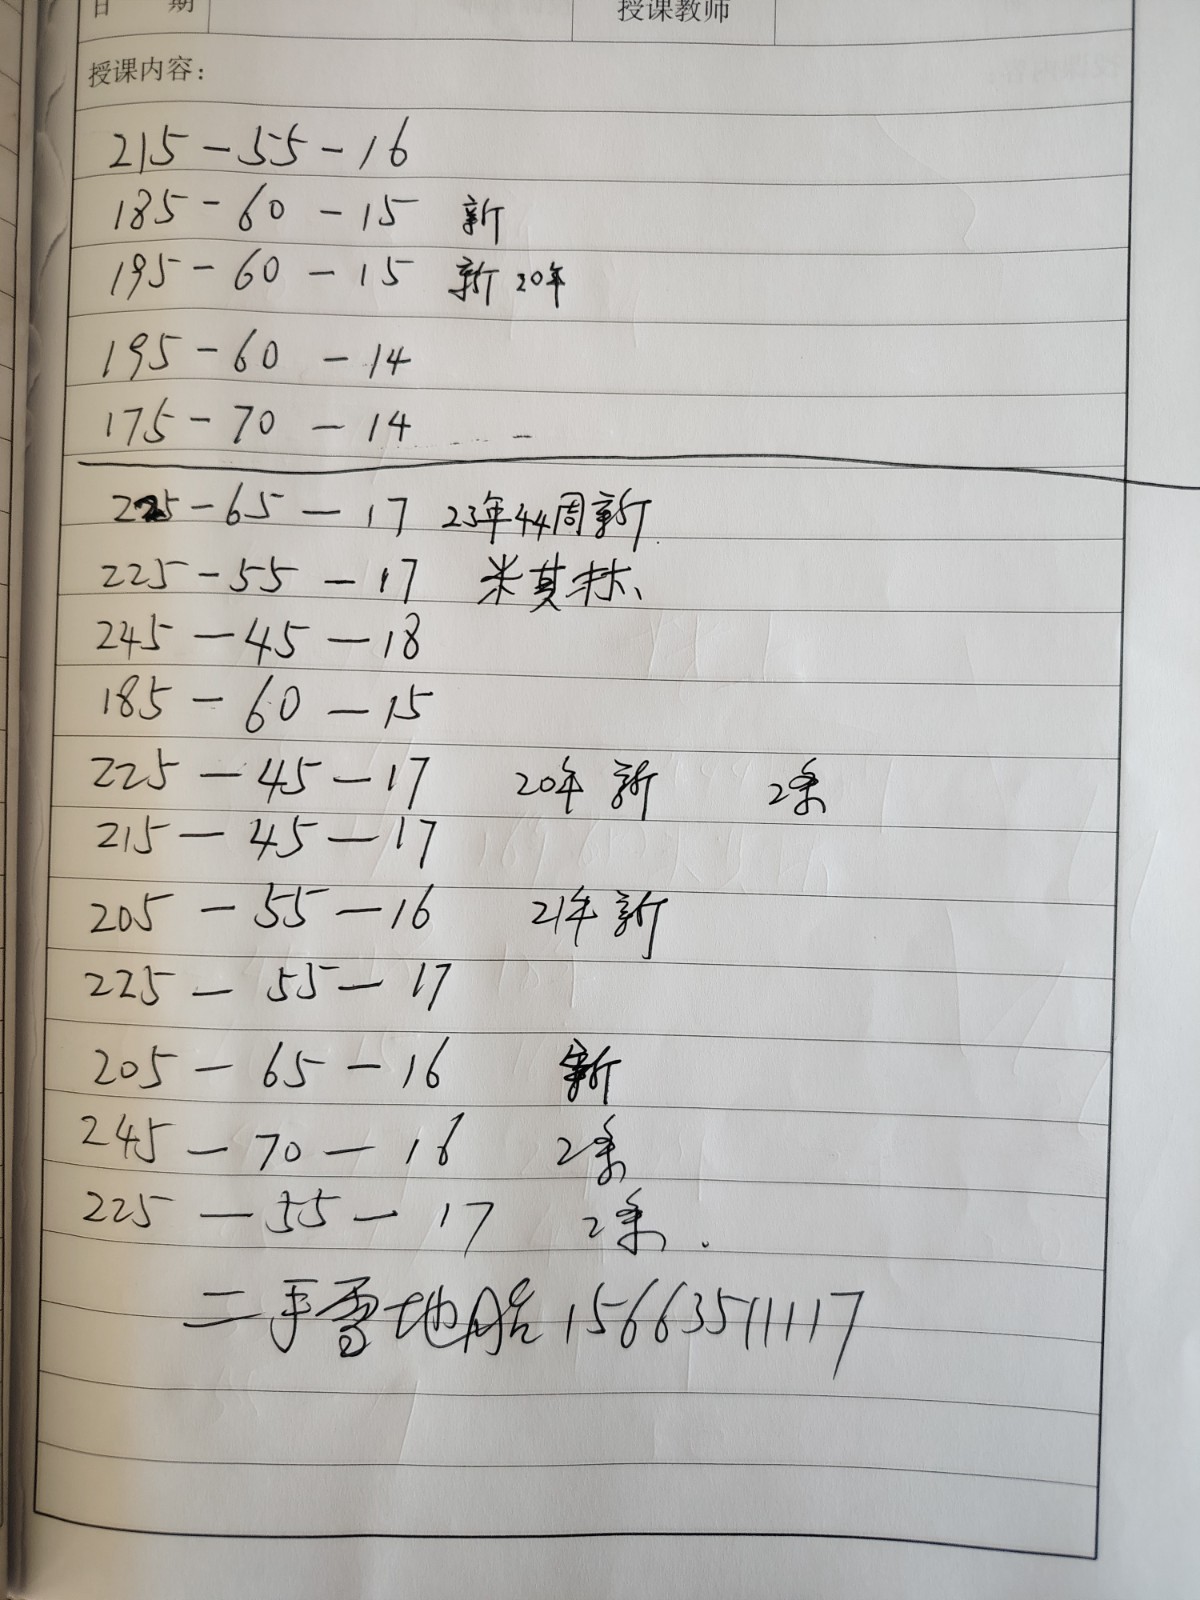 日 期 授课教师
授课内容：
215-55-16
185-60-15 新
195-60-15 新 20年
195-60-14
175-70-14
225-65-17 23年44周新
225-55-17 米其林
245-45-18
185-60-15
225-45-17 20年 新 2条
215-45-17
205-55-16 21年 新
225-55-17
205-65-16 新
245-70-16 2条
225-55-17 2条.
二手雪地胎 15663511117